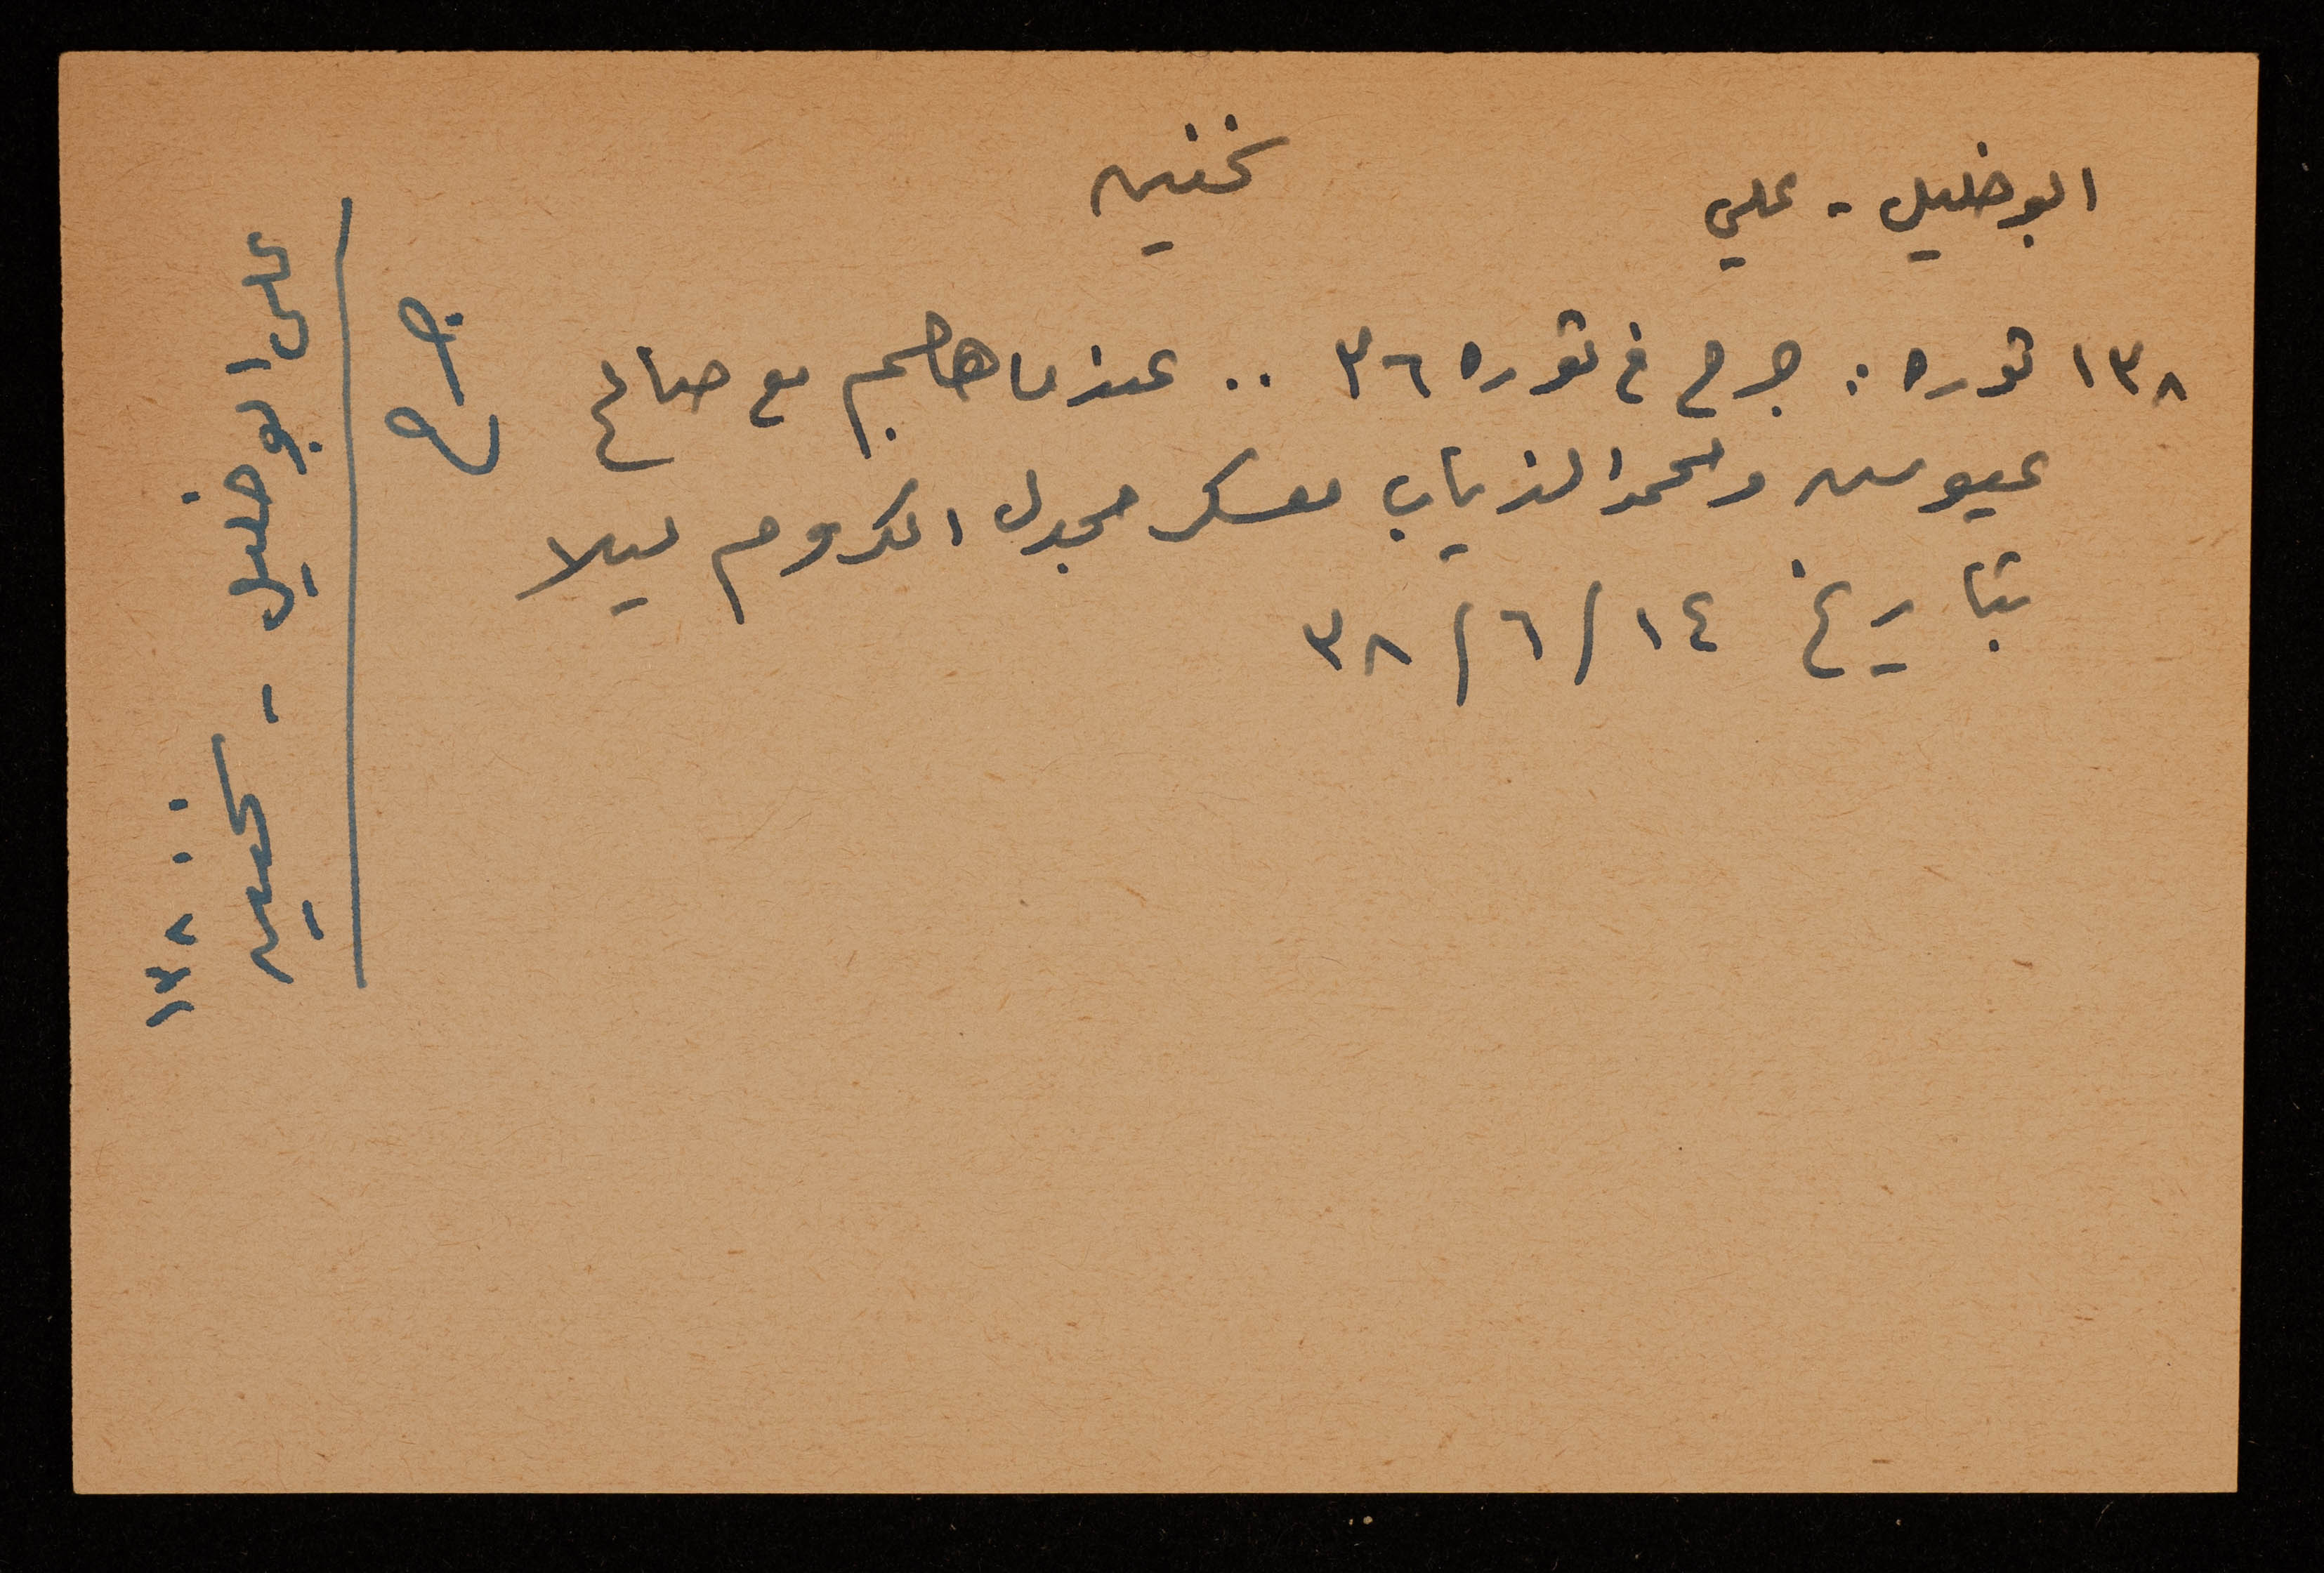 ابو خليل - علي
نحنيه
١٣٨ ثوره : جرح في ثوره ٣٦ .. عندما هاجم مع صالح
عيوس ومحمد الذياب معسكر مجدل الكروم ليلا
بتاريخ ١٤/٦/٣٨
جرح
على ابو خليل - نحنيه
١٣٨